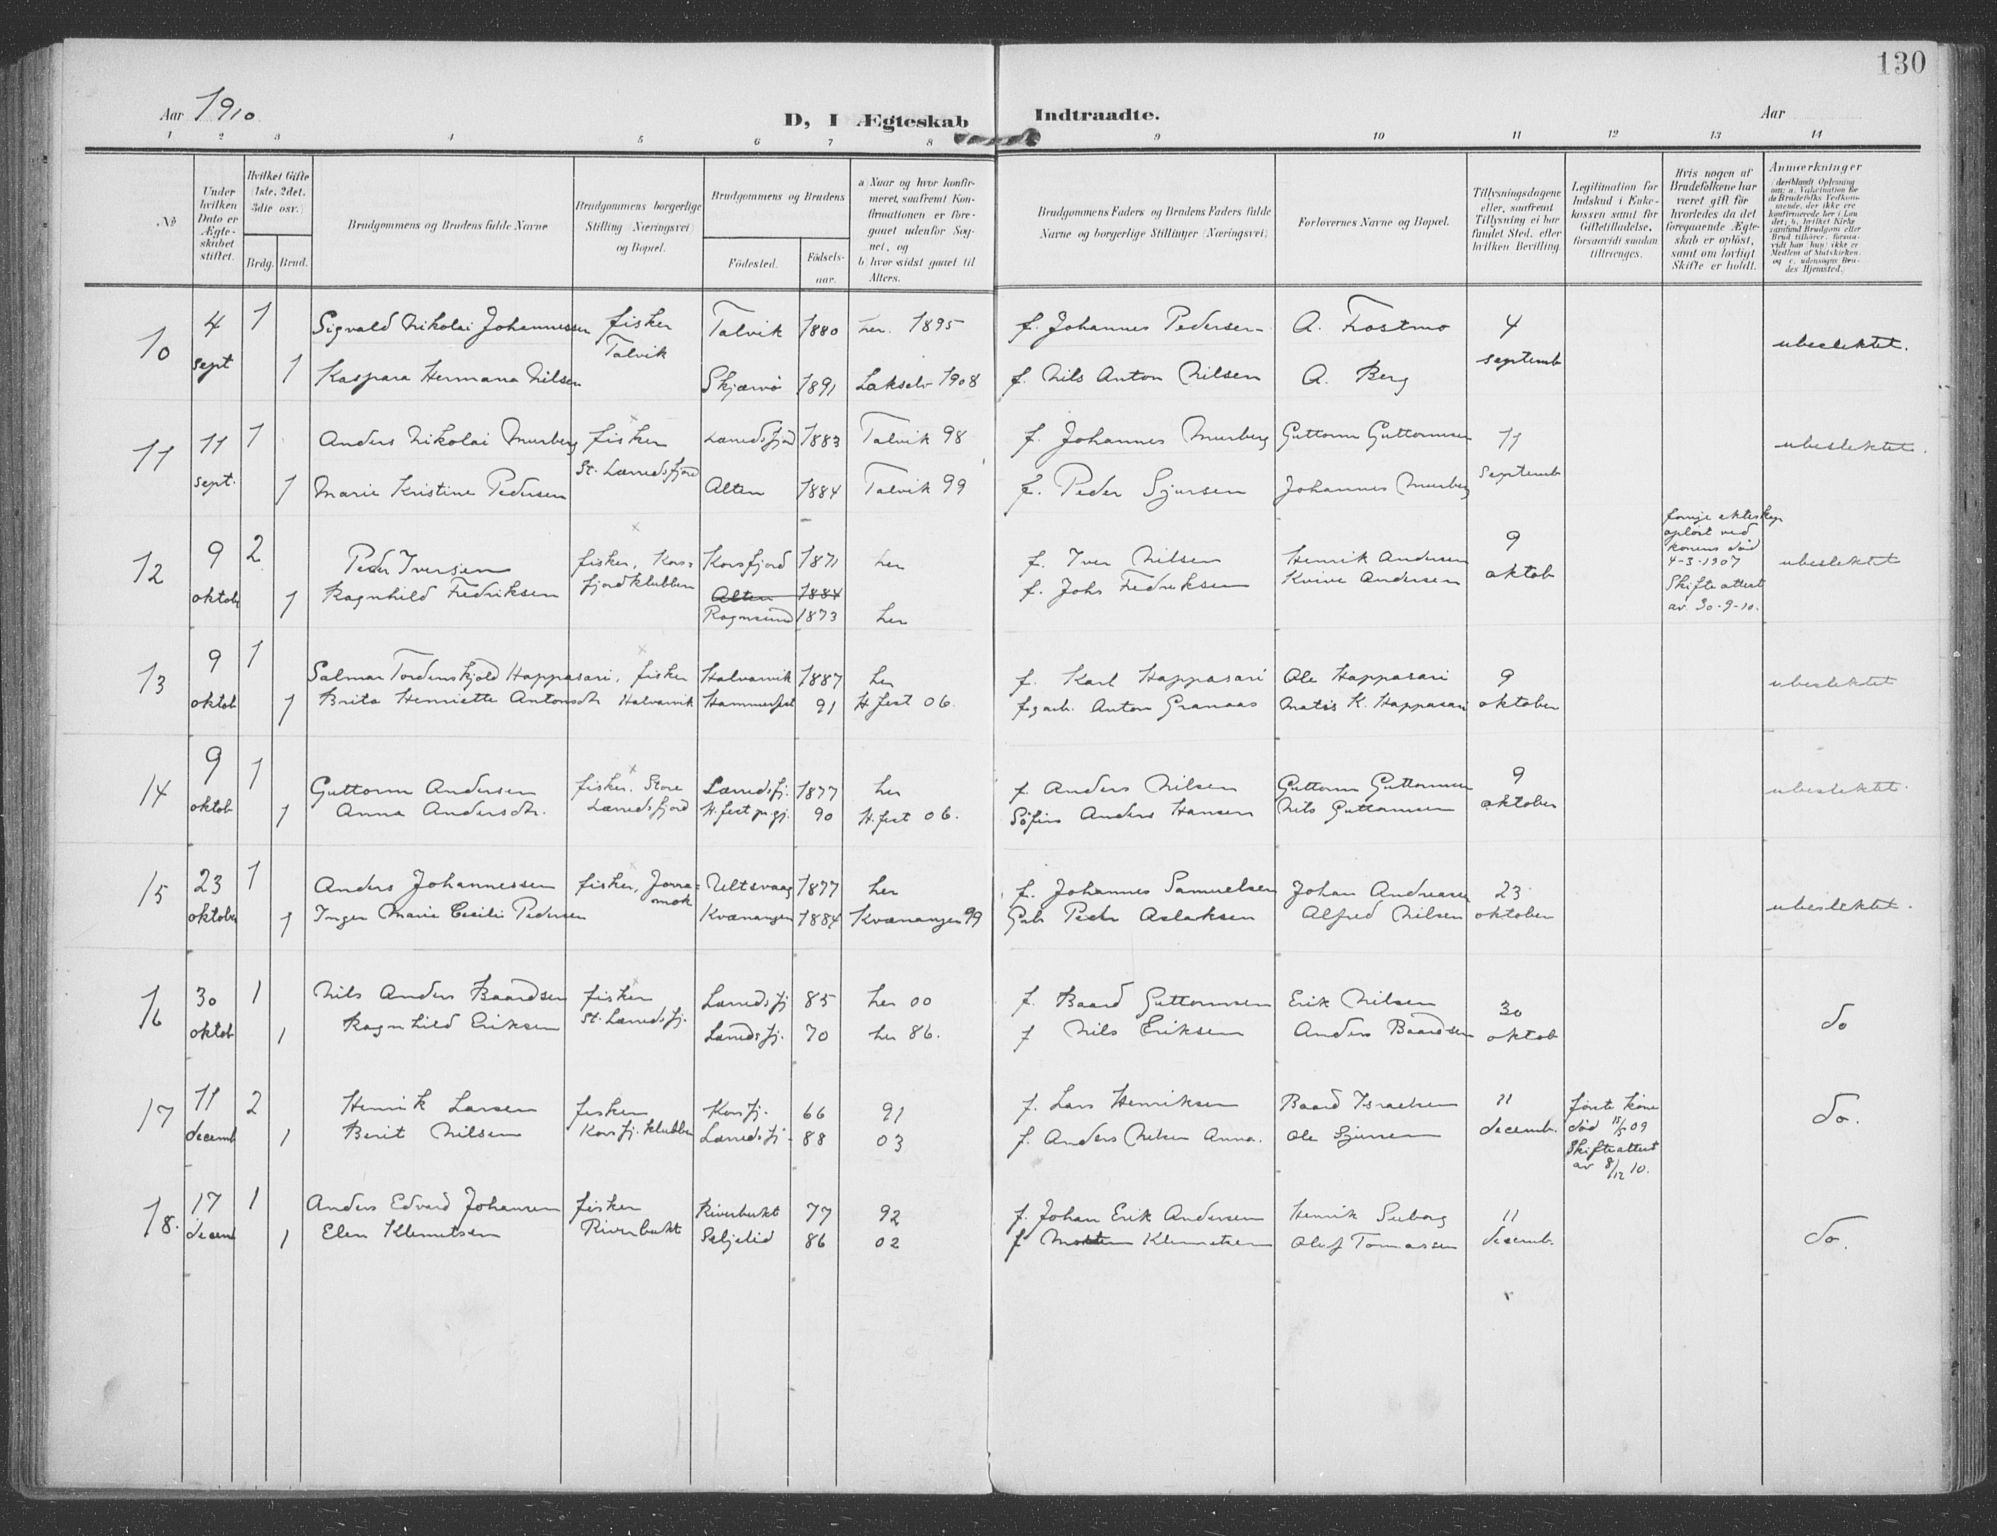 130
Aar 1910
D, I Ægteskab Indtraadte.
Aar
1 2 3 4 5 6 7 8 9 10 11 12 13 14
№
Under hvilken Dato er Ægte- skabet stiftet.
Hvilket Gifte (1ste, 2det, 3die osv.)
Brdg. Brud.
Brudgommens og Brudens fulde Navne
Brudgommens borgerlige Stilling (Næringsvei) og Bopæl.
Brudgommens og Brudens
Födested.
Födsels- aar.
a) Naar og hvor konfir- meret, saafremt Kon- firmationen er fore- gaaet udenfor Sog- net, og
b) hvor sidst gaaet til Alters.
Brudgommens Faders og Brudens Faders fulde Navne og borgerlige Stillinger (Næringsvei)
Forlovernes Navne og Bopæl.
Tillysningsdagene eller, saafremt Tillysning ei har fundet Sted, efter hvilken Bevilling
Legitimation for Indskud i Enke- kassen samt for Giftetilladelse, forsaavidt saadan tiltrænges.
Hvis nogen af Brudefolkene har været gift før hvorledes da det foregaaende Ægte- skab er opløst, samt om lovligt Skifte er holdt.
Anmærkninger
(deriblandt Oplysning om: a. Vakcination for de Brudefolks Vedkom- mende, der ikke ere konfirmerede her i Lan- det; b. hvilket Kirke- samfund Brudgom eller Brud tilhører, forsaa- vidt han (hun) ikke er Medlem af Statskirken, og c. udensogns Bru- des Hjemsted.)
10 4 sept 1 Sigvald Nikolai Johannessen fisker Talvik Talvik 1880 her. 1895 f. Johannes Pedersen A. Trostmo 4 septemb ubeslektet.
1 Kaspara Hermana Nilsen Skjærvø 1891 Lakselv 1908 f. Nils Anton Nilsen A. Berg
11 11 sept. 1 Anders Nikolai Murberg fisker St. Lerredsfjord Lerredsfjord 1883 Talvik 98 f. Johannes Murberg Guttorm Guttormsen 11 septemb ubeslektet.
1 Marie Kristine Pedersen Alten 1884 Talvik 99 f. Peder Sjursen Johannes Murberg
12 9 oktob 2 Peder Iversen fisker, Kors= fjordklubben Korsfjord 1871 her f. Iver Nilsen Henrik Andersen 9 oktob forrige ekteskap opløst ved konens død 4-3-1907 Skifteattest av 30-9-10. ubeslektet
1 Ragnhild Fedriksen Alten 1884 Rognsund 1873 her f. Johs Fedriksen Kvive Andersen
13 9 oktob 1 Salmar Tordenskjold Happasari, fisker Halvarvik 1887 her f. Karl Happasari Ole Happasari 9 oktober ubeslektet
1 Brita Henriette Antonsdtr Halvarvik Hammerfest 91 H.fest 06. fgarb. Anton Granaas Matis K. Happasari
14 9 oktob 1 Guttorm Andersen fisker. Store Lerredsfjord Lerredsfj. 1877 her f. Anders Nilsen Guttorm Guttormsen 9 oktober ubeslektet.
1 Anna Andersdtr. H.fest pgj. 90 H.fest 06. Anders Hansen Nils Guttormsen
15 23 oktober 1 Anders Johannessen fisker, Jorra= mok Ultsvaag 1877 her f. Johannes Samuelsen Johan Andreasen 23 oktober ubeslektet.
1 Inger Marie Cecilie Pedersen Kvænangen 1884 Kvænangen 99 Gab. Peder Aslaksen Alfred Nilsen
16 30 oktob 1 Nils Anders Baardsen fisker St. Lerredsfj. Lerredsfj 85 her 00 f. Baard Guttormsen Erik Nilsen 30 oktob do
1 Ragnhild Eriksen Lerredsfj. 70 her 86. f Nils Eriksen Anders Baardsen
17 11 decemb 2 Henrik Larsen fisker Korsfj. klubben Korsfj. 66 91 f. Lars Henriksen Baard Israelsen 11 decemb. første kone død 15/5 09 Skifteattest av 8/12 10. do.
1 Berit Nilsen Lerredsfj. 88 03 f. Anders Nilsen Anna. Ole Sjursen
18. 17 decemb 1 Anders Edvard Johansen fisker Riverbukt Riverbukt 77 92 f. Johan Erik Andersen Henrik Suborg 11 decemb. do.
1 Elen Klemetsen Seljelid 86 02 f Morten Klemetsen Oluf Tomassen